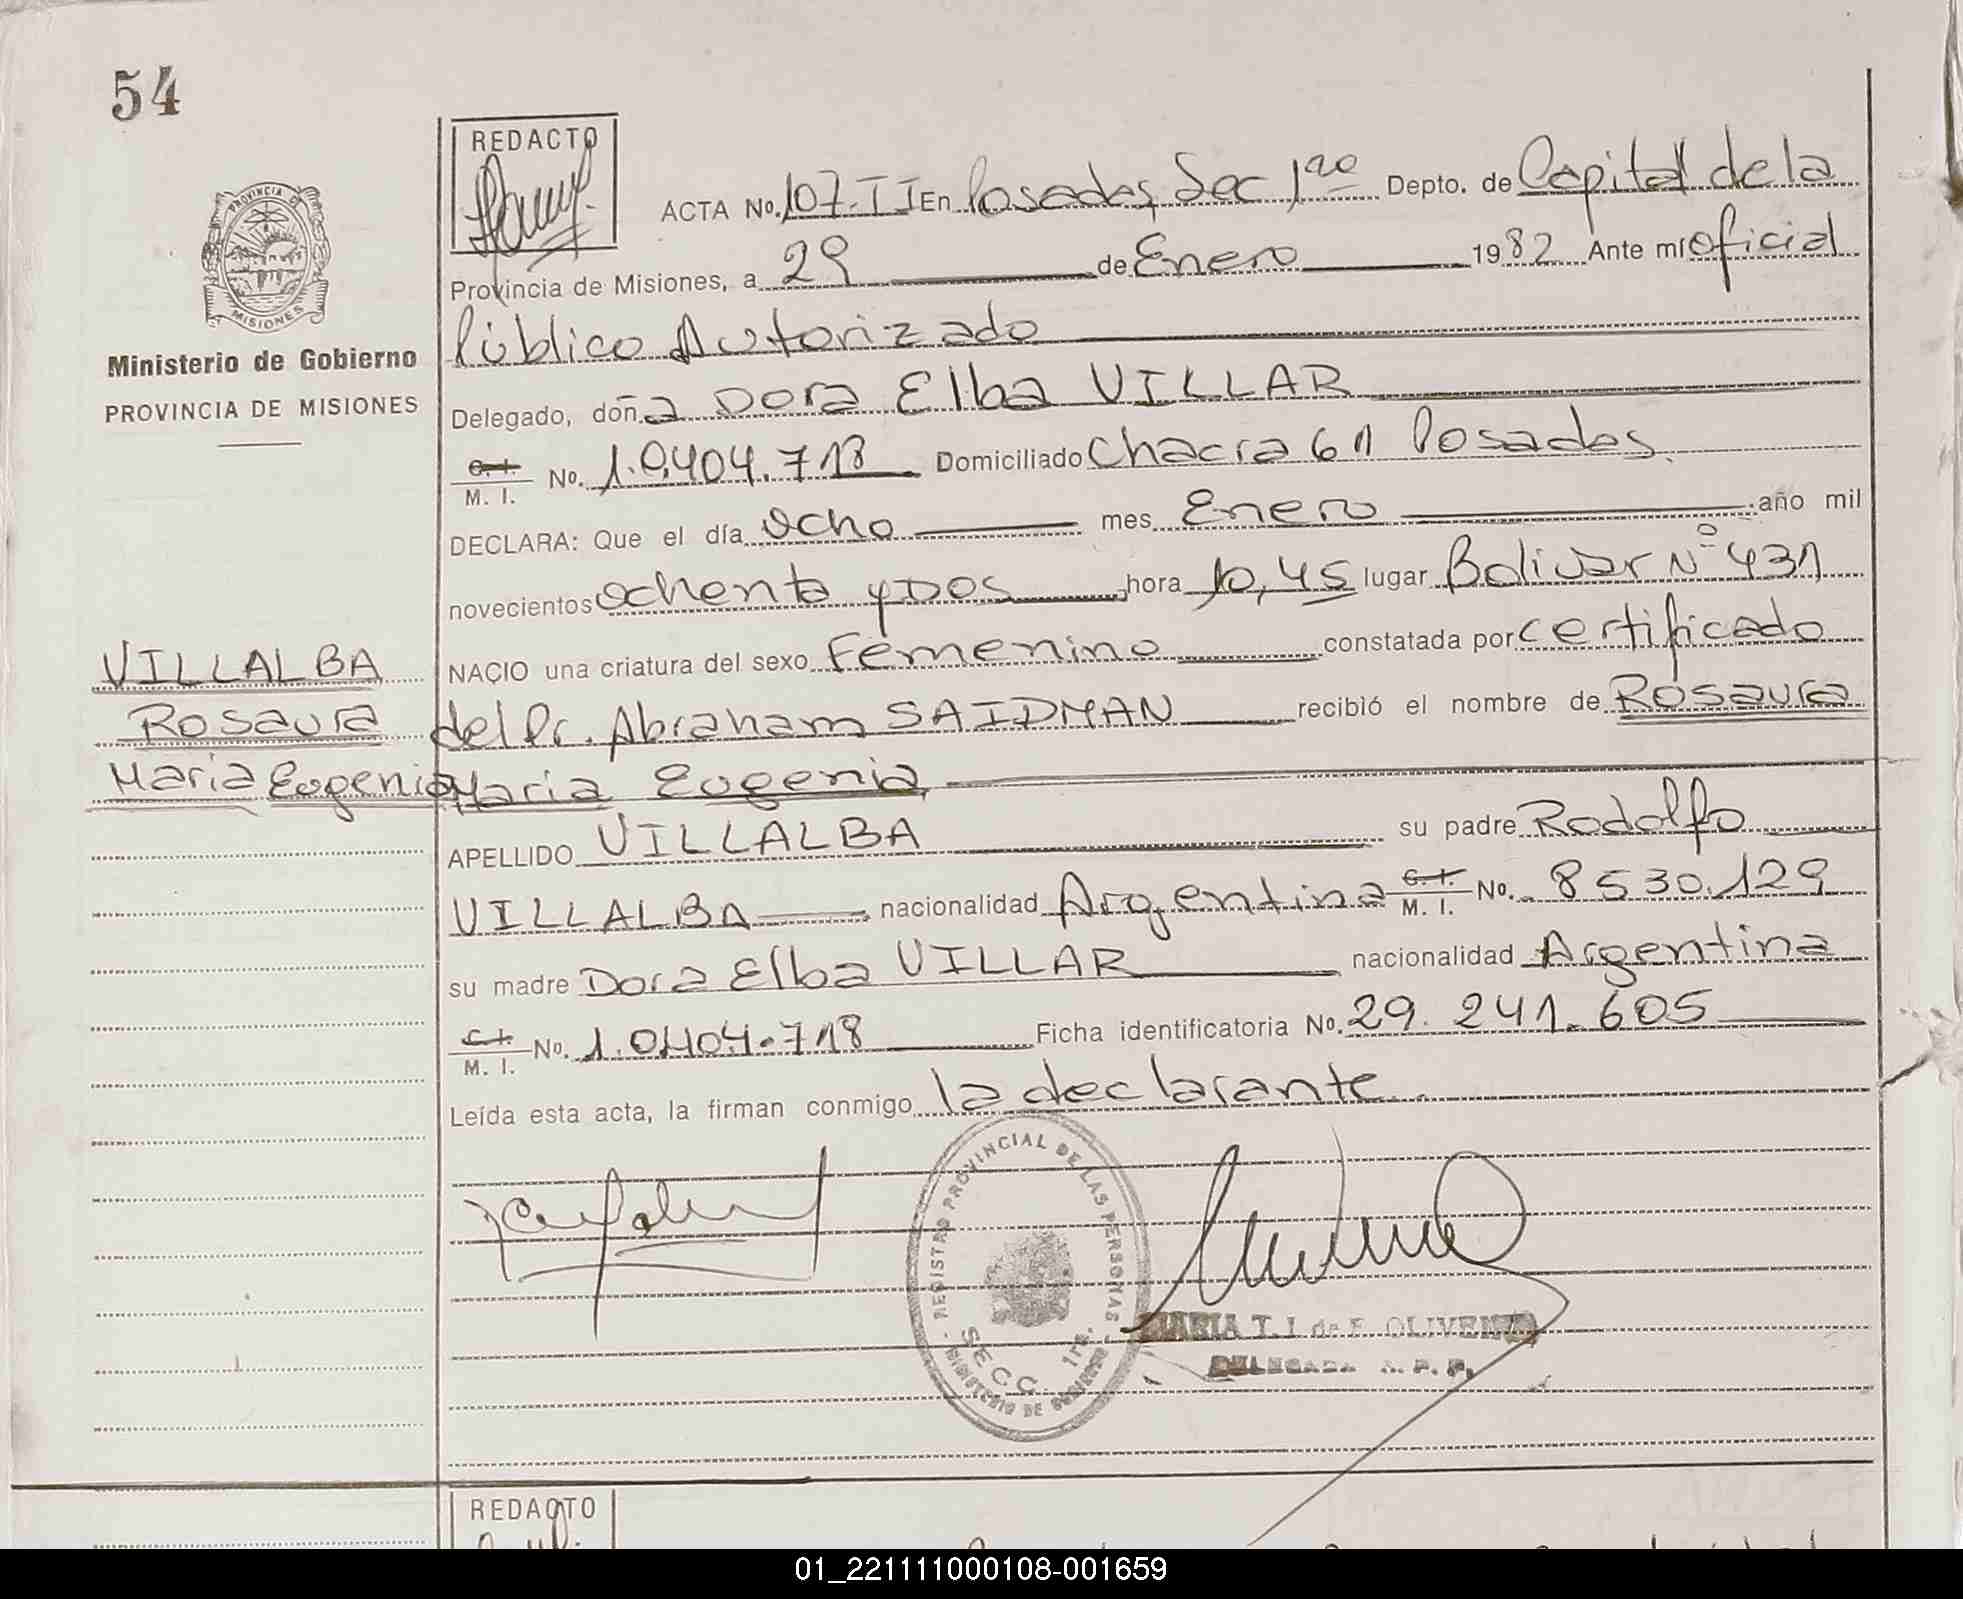 54
REDACTO
ACTA No. 107-II En Posadas, Sec 1ra Depto. de Capital de la
Provincia de Misiones, a 29 de Enero 1982 Ante mí oficial
Público Autorizado
PROVINCIA DE MISIONES
Ministerio de Gobierno
PROVINCIA DE MISIONES
Delegado, doña Dora Elba VILLAR
C. I. M. I. No. 10.404.718 Domiciliado Chacra 61 Posadas.
DECLARA: Que el día ocho mes Enero año mil
novecientos ochenta y Dos hora 10,45 lugar Bolivar Nº 431
NACIO una criatura del sexo Femenino constatada por certificado
del Dr. Abraham SAIDMAN recibió el nombre de Rosaura
María Eugenia
VILLALBA
Rosaura
María Eugenia
APELLIDO VILLALBA su padre Rodolfo
VILLALBA nacionalidad Argentina C. I. M. I. No. 8530.129
su madre Dora Elba VILLAR nacionalidad Argentina
C. I. M. I. No. 10.404.718 Ficha identificatoria No. 29.241.605
Leída esta acta, la firman conmigo la declarante.
REGISTRO PROVINCIAL DE LAS PERSONAS
SECC. 1ra.
MINISTERIO DE GOBIERNO
MARIA T. I. de F. OLIVEIRA
DELEGADA R. P. P.
REDACTO
01_221111000108-001659